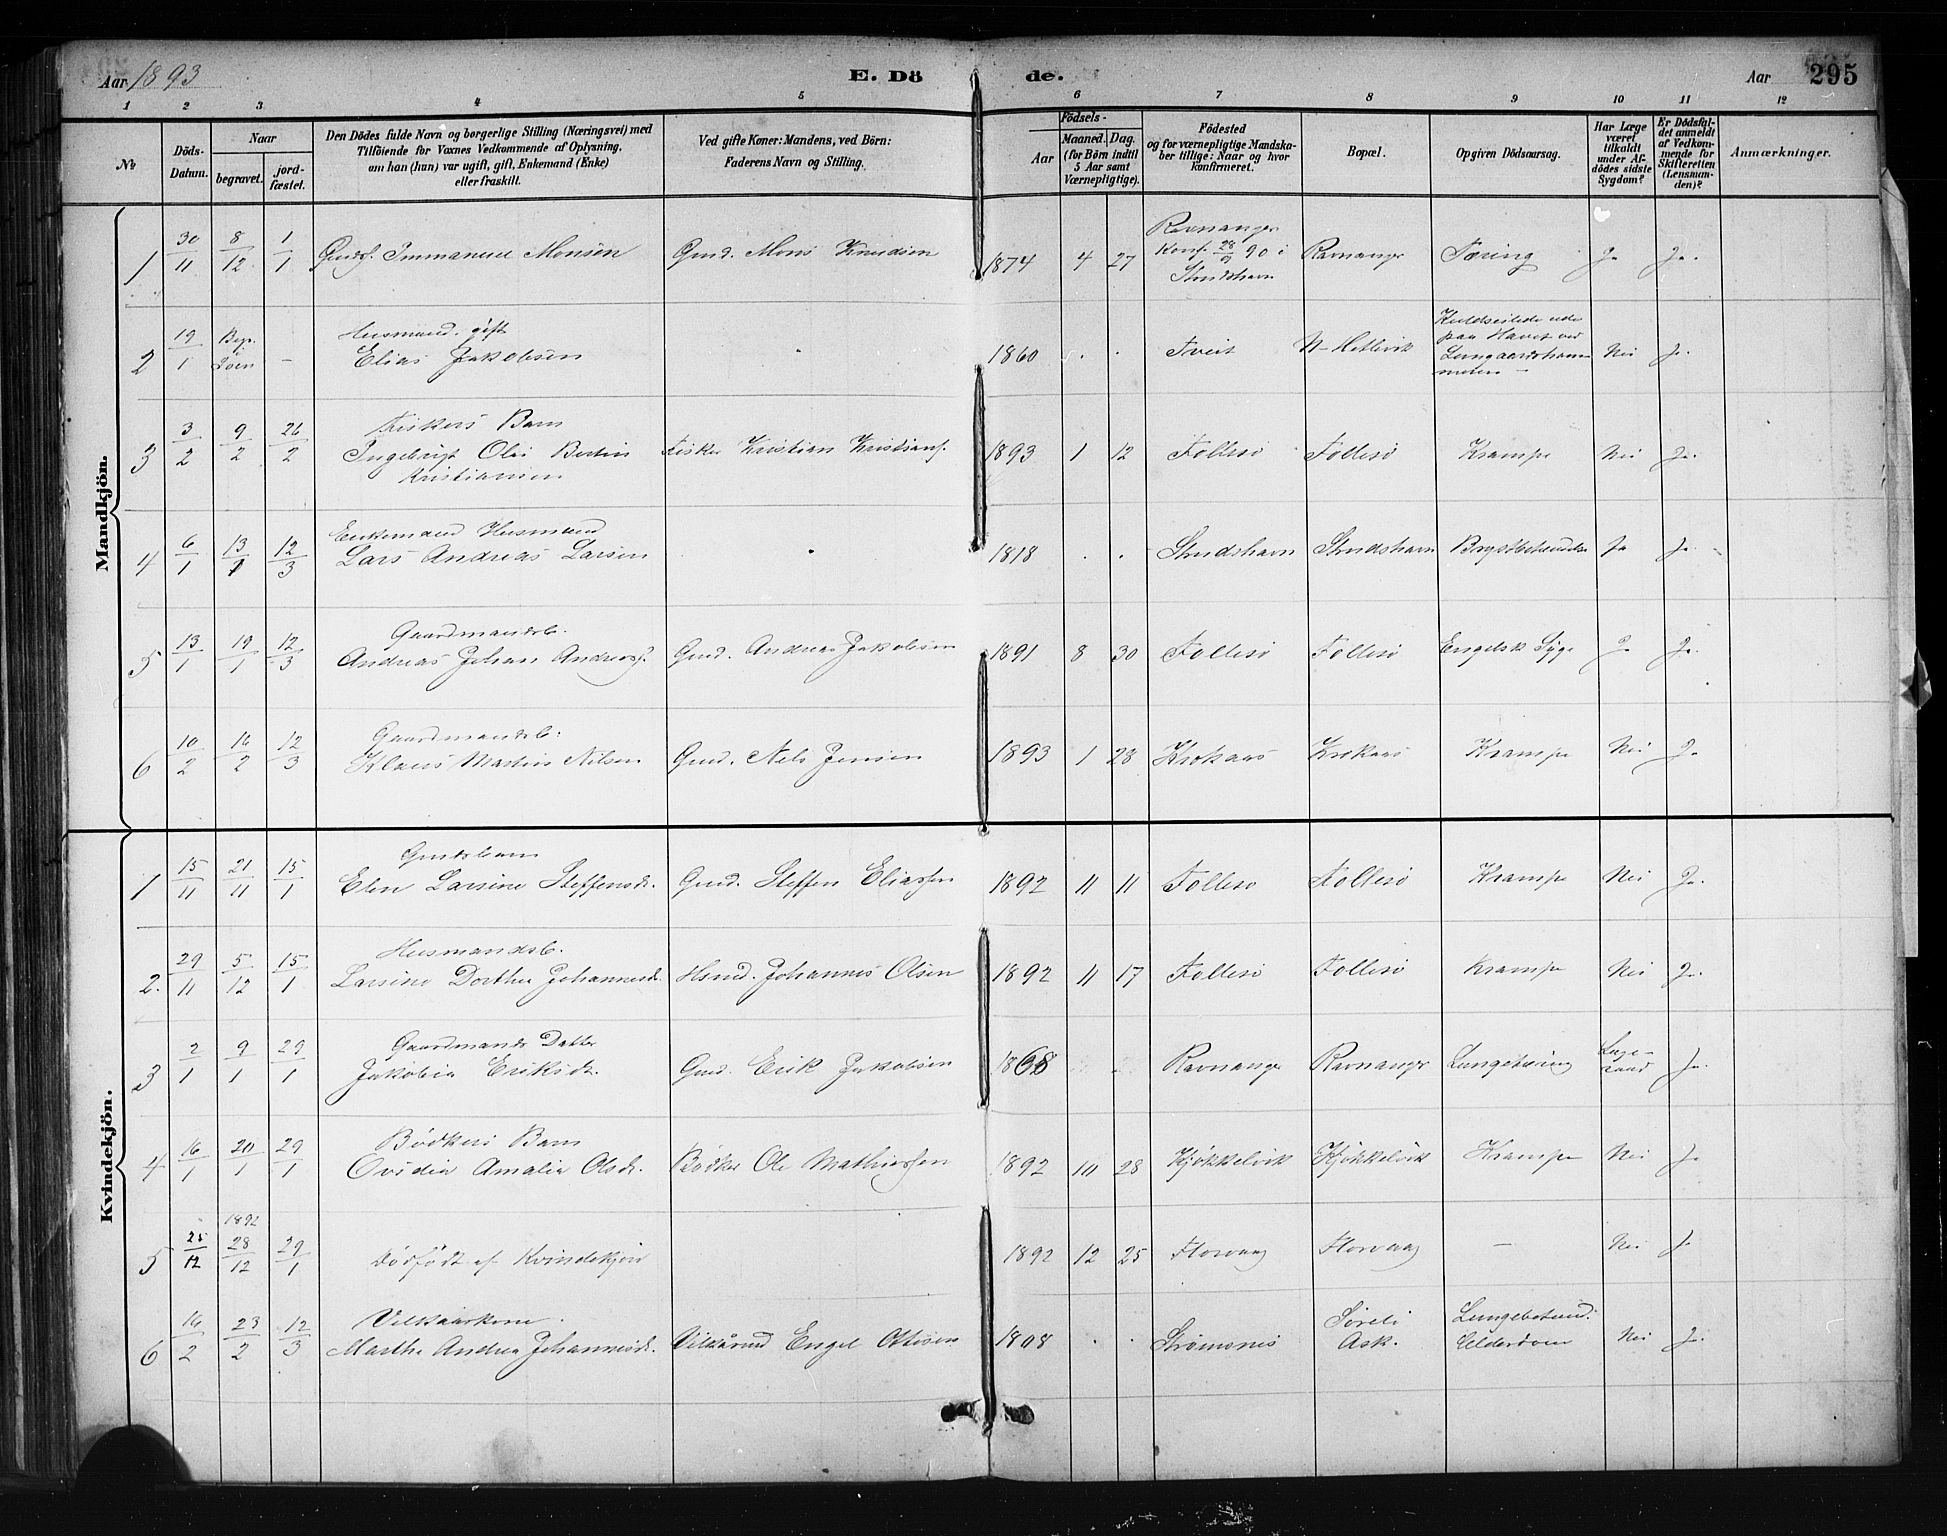 Aar 1893 E. Dö de. Aar 295
1 2 3 4 5 6 7 8 9 10 11 12
No Döds-Datum. Naar begravet. jordfæstet. Den Dödes fulde Navn og borgerlige Stilling (Næringsvei) med Tilföiende for Voxnes Vedkommende af Oplysning, om han (hun) var ugift, gift, Enkemand (Enke) eller fraskilt. Ved gifte Koner: Mandens, ved Börn: Faderens Navn og Stilling. Födsels- Aar Maaned. Dag. (for Börn indtil 5 Aar samt Værnepligtige). Födested og for værnepligtige Mandskaber tillige: Naar og hvor konfirmeret. Bopæl. Opgiven Dödsaarsag. Har Læge været tilkaldt under Afdödes sidste Sygdom? Er Dödsfaldet anmeldt af Vedkommende for Skifteretten (Lensmanden)? Anmærkninger.
Mandkjön.
1 30/11 8/12 1/1 Immanuel Monsen Gmd. Mons Knudsen 1874 4 27 Ravnanger Konf. 28/9 90 i Strudshavn Ravnanger Tæring Ja Ja.
2 19/1 - Husmand. gift Elias Jakobsen " 1860 . . Tveit N-Hetlevik Kuldseilede ude paa Havet ved Nei Ja.
3 3/2 9/2 26/2 Fiskers Barn Ingebrigt Olai Bertin Kristiansen Fisker Kristian Kristians. 1893 1 12 Follesö Follesö Krampe Nei Ja.
4 6/1 13/1 12/3 Enkemand Husmand Lars Andreas Larsen " 1818 . . Strudshavn Strudshavn Brystbetændelse Ja Ja.
5 13/1 19/1 12/3 Gaardmandsb. Andreas Johan Andreass. Gmd. Andreas Jakobsen 1891 8 30 Follesö Follesö Engelsk Syge Ja Ja.
6 10/2 16/2 12/3 Gaardmandsb. Klaus Martin Nilsen Gmd. Nels Jensen 1893 1 28 Krokaas Krokaas Krampe Nei Ja
Kvindekjön.
1 15/11 21/11 15/1 Elen Larsine Steffensdt. Gmd. Steffen Eliassen 1892 11 11 Follesö Follesö Krampe Nei Ja.
2. 29/11 5/12 15/1 Husmandsb. Larsine Dorthea Johannesdt. Hsmd. Johannes Olsen 1892 11 17 Follesö Follesö Krampe Nei Ja.
3 2/1 9/1 29/1 Gaardmands Datter Jakobia Eriksdt. Gmd. Erik Jakobsen 1868 Ravnanger Ravnanger Lungetæring Ja.
4 16/1 20/1 29/1 Bödkers Barn Ovidia Amalia Olsdt. Bödker Ole Mathiassen 1892 10 28 Kjøkkelvik Kjøkkelvik Krampe Nei Ja
5 25/12 1892 28/12 29/1 Dödfödt af Kvindekjön 1892 12 25 Florvaag Florvaag — Nei Ja
6 16/2 23/2 12/3 Vilkaarskone. Marthe Andrea Johannesdt. Vilkårmd Engel Ottesen 1808 . . Strömsnes Ask. Lungebetænd. Alderdom Nei Ja.